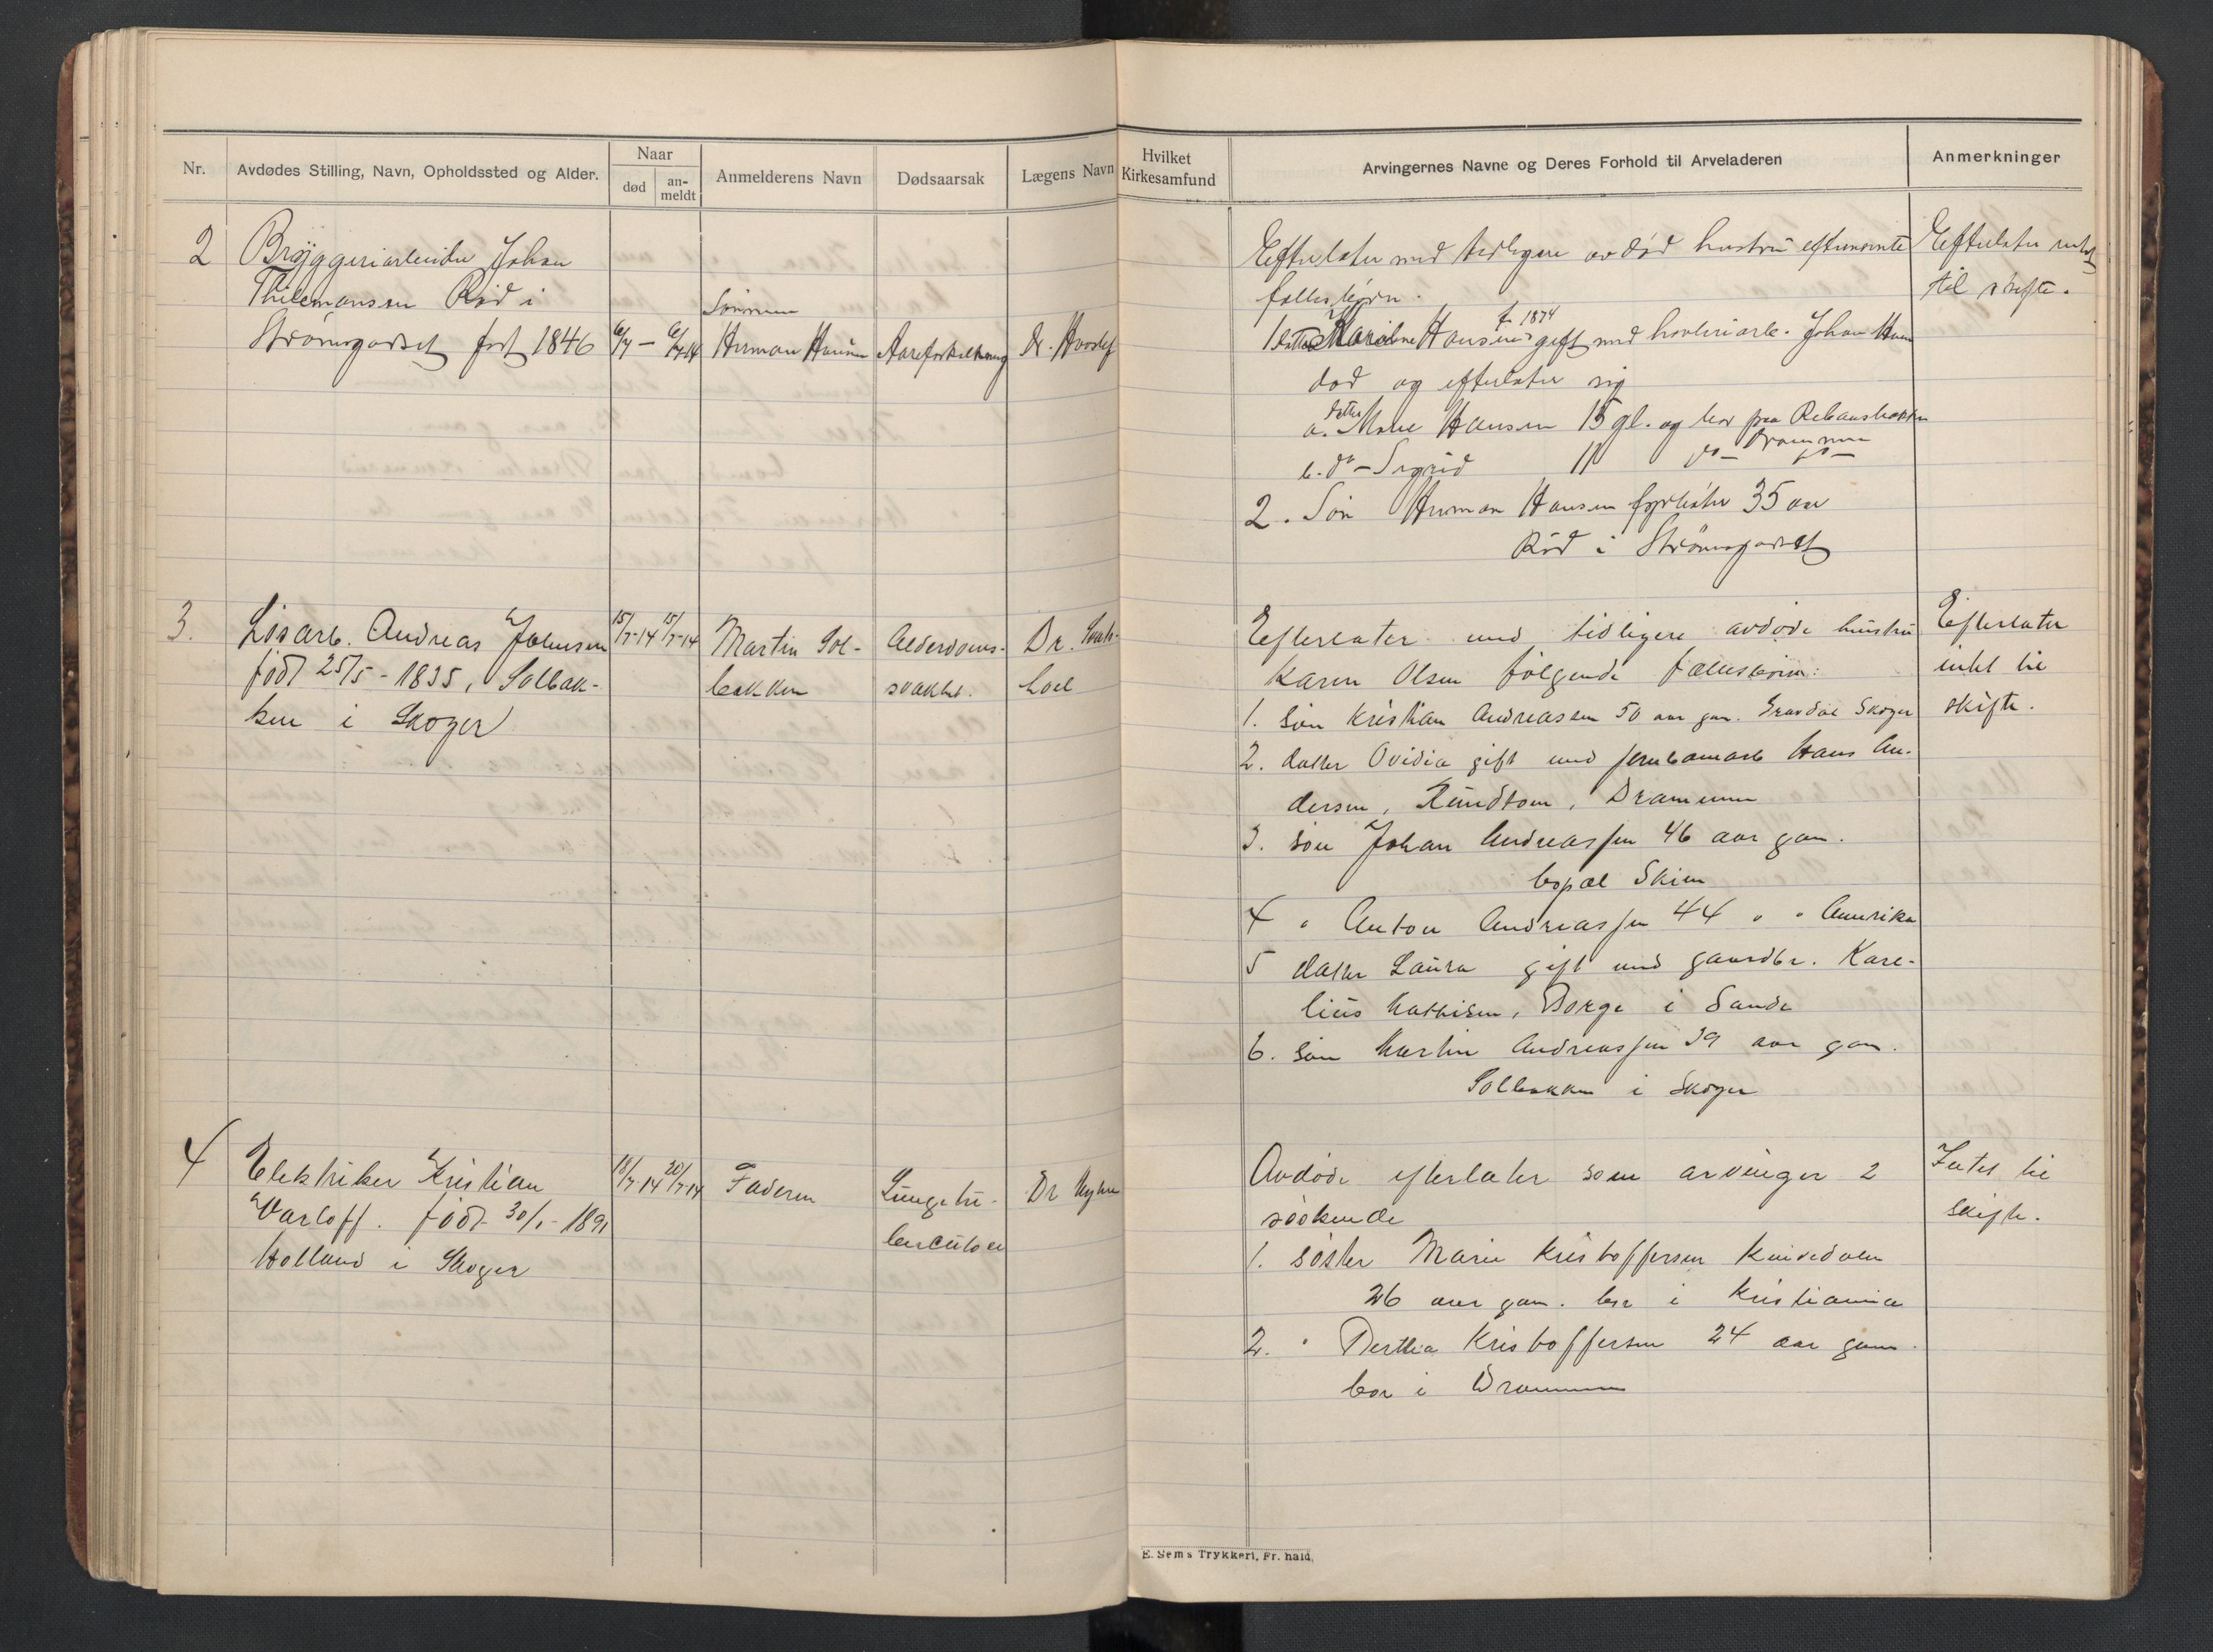 Nr.
Avdødes Stilling, Navn, Opholdssted og Alder.
Naar
død
an-
meldt
Anmelderens Navn
Dødsaarsak
Lægens Navn
Hvilket
Kirkesamfund
Arvingernes Navne og Deres Forhold til Arveladeren
Anmerkninger
2
Bryggeriarbeider Johan
Thilemansen Rød i
Strømsgodset født 1846
6/7 — 6/7 14
Sønnen
Herman Hansen
Aareforkalkning
Dr.
Efterlater med tidligere avdød hustru
fællesbørn.
f. 1874
1 datter Karoline Hansen gift med høvleriarb. Johan
død og efterlater sig
a. datter Marie Hansen 15 gl. og bor paa
Drammen
b. do – Sigrid 11 do – do –
2. Søn Herman Hansen fyrbøter 35 aar
Rød i Strømsgodset
Efterlater intet
til skifte.
3.
Løsarb. Andreas Johnsen
født 25/5 - 1835, Solbak-
ken i Skoger
15/7-14 15/7-14
Martin Sol-
bakken
Alderdoms-
svakhet.
Dr.
Efterlater med tidligere avdøde hustru
Karen Olsen følgende fællesbørn:
1. søn Kristian Andreassen 50 aar gam. Gravdal Skoger
2. datter Ovidia gift med jernbanearb Hans An-
dersen, Rundtom, Drammen
3. søn Johan Andreassen 46 aar gam.
bopæl Skien
4 " Anton Andreassen 44 " " Amerika
5 datter Laura gift med gaardbr. Kare-
lius Mathisen, Berge i Sande
6. søn Martin Andreassen 39 aar gam.
Solbakken i Skoger
Efterlater
intet til
skifte.
4
Elektriker Kristian
Varloff. født 30/1 - 1891
Holland i Skoger
18/7 14 20/7 14
Faderen
Lungetu-
berculose
Dr Myhre
Avdøde efterlater som arvinger 2
søskende
1. søster Marie Kristoffersen
26 aar gam. bor i Kristiania
2. " Berthea Kristoffersen 24 aar gam.
bor i Drammen
Intet til
skifte.
E. Sem's Trykkeri, Fr. hald.